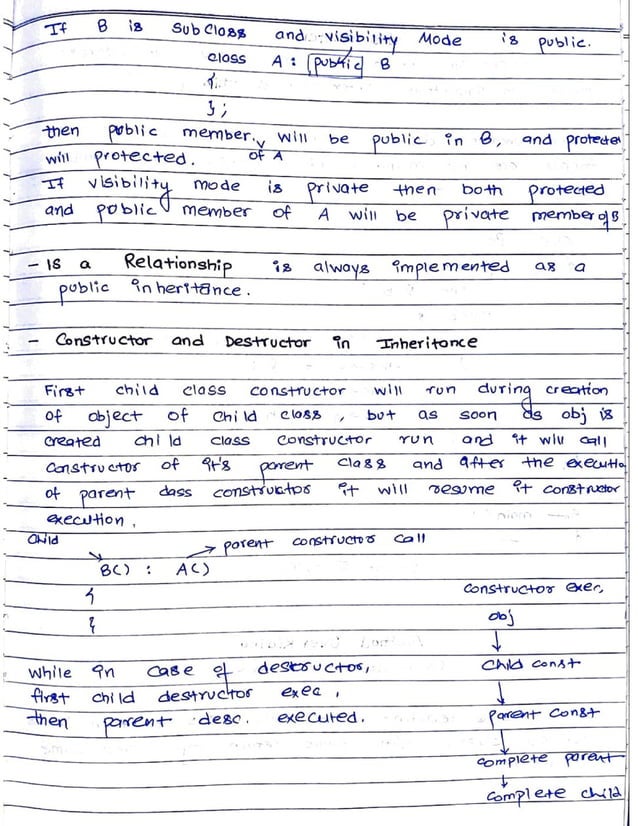 If B is SubClass and visibility Mode is public.
class A : public B
{
};
then public member of A will be public in B, and protected
will protected.
If visibility mode is private then both protected
and public member of A will be private member of B
- IS a Relationship is always implemented as a
public inheritance.
- Constructor and Destructor in Inheritance
First child class constructor will run during creation
of object of child class, but as soon as obj is
created child class constructor run and it will call
constructor of it's parent class and after the executio
of parent class constructor it will resume it constructor
execution,
child
→ parent constructor call
B() : A()
{
}
constructor exec,
obj
↓
child const
↓
parent const
↓
complete parent
↓
complete child
while in case of destructor,
first child destructor exec,
then parent desc. executed.